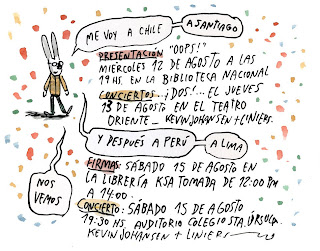 ME VOY A CHILE
A SANTIAGO
PRESENTACIÓN "OOPS!"
MIERCOLES 12 DE AGOSTO A LAS
19 HS. EN LA BIBLIOTECA NACIONAL
CONCIERTOS... ¡DOS!... EL JUEVES
13 DE AGOSTO EN EL TEATRO
ORIENTE - KEVIN JOHANSEN + LINIERS.
Y DESPUÉS A PERÚ
A LIMA
FIRMAS: SÁBADO 15 DE AGOSTO EN
LA LIBRERÍA KSA TOMADA DE 12:00 PM
A 14:00.
CONCIERTO: SÁBADO 15 DE AGOSTO
19:30 HS AUDITORIO COLEGIO STA. ÚRSULA.
KEVIN JOHANSEN + LINIER
NOS
VEMOS